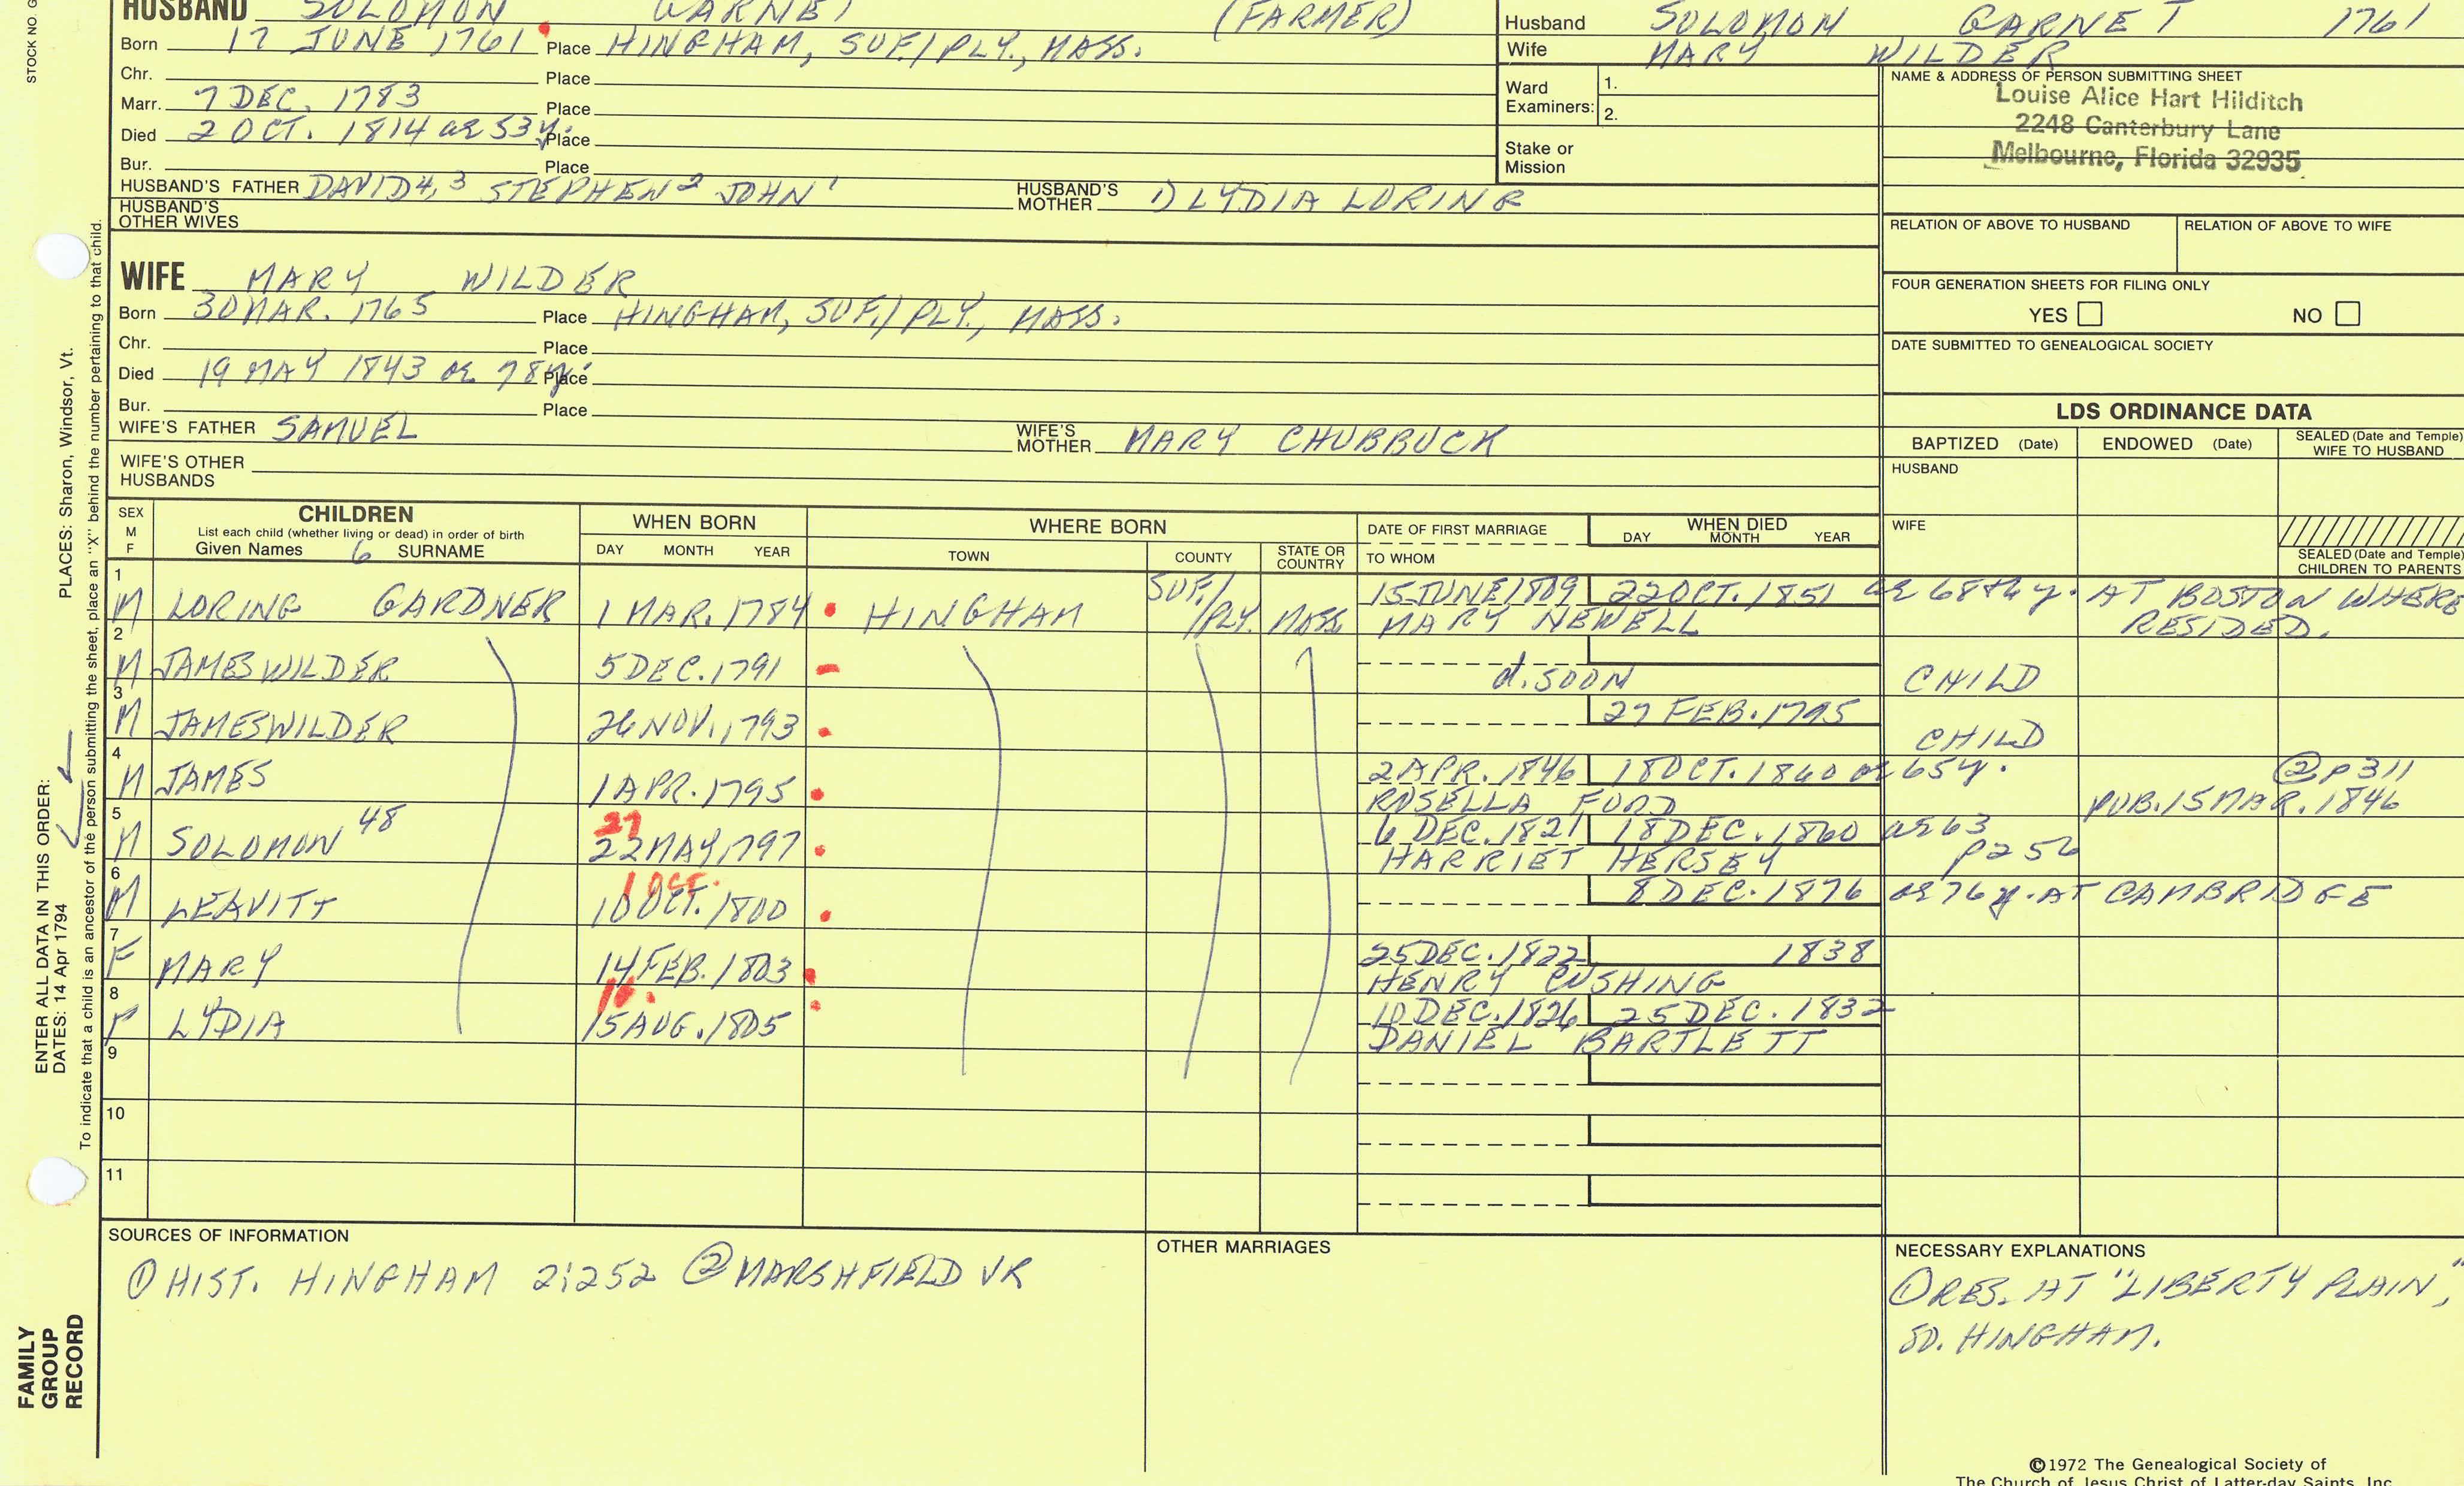 STOCK NO. G
HUSBAND SOLOMON GARNET (FARMER)
Born 17 JUNE 1761 Place HINGHAM, SUF./PLY., MASS.
Chr. Place
Marr. 7 DEC. 1783 Place
Died 2 OCT. 1814 ae 53y. Place
Bur. Place
HUSBAND'S FATHER DAVID4,3 STEPHEN2 JOHN1 HUSBAND'S MOTHER 1) LYDIA LORING
HUSBAND'S OTHER WIVES
WIFE MARY WILDER
Born 30 MAR. 1765 Place HINGHAM, SUF./PLY., MASS.
Chr. Place
Died 19 MAY 1843 ae 78y. Place
Bur. Place
WIFE'S FATHER SAMUEL WIFE'S MOTHER MARY CHUBBUCK
WIFE'S OTHER HUSBANDS
Husband SOLOMON GARNET 1761
Wife MARY WILDER
Ward Examiners: 1.
2.
Stake or Mission
NAME & ADDRESS OF PERSON SUBMITTING SHEET
Louise Alice Hart Hilditch
2248 Canterbury Lane
Melbourne, Florida 32935
RELATION OF ABOVE TO HUSBAND RELATION OF ABOVE TO WIFE
FOUR GENERATION SHEETS FOR FILING ONLY
YES NO
DATE SUBMITTED TO GENEALOGICAL SOCIETY
LDS ORDINANCE DATA
BAPTIZED (Date) ENDOWED (Date) SEALED (Date and Temple) WIFE TO HUSBAND
HUSBAND
WIFE
SEALED (Date and Temple) CHILDREN TO PARENTS
SEX M F CHILDREN WHEN BORN WHERE BORN DATE OF FIRST MARRIAGE WHEN DIED
List each child (whether living or dead) in order of birth
Given Names 6 SURNAME DAY MONTH YEAR TOWN COUNTY STATE OR COUNTRY TO WHOM DAY MONTH YEAR
1 M LORING GARDNER 1 MAR. 1784 HINGHAM SUF./PLY. MASS. 15 JUNE 1809 22 OCT. 1851 ae 68thy. AT BOSTON WHERE
MARY NEWELL RESIDED.
2 M JAMES WILDER 5 DEC. 1791 d. SOON CHILD
3 M JAMES WILDER 26 NOV. 1793 27 FEB. 1795 CHILD
4 M JAMES 1 APR. 1795 2 APR. 1846 18 OCT. 1860 ae 65y. @p311
ROSELLA FORD PUB. 15 MAR. 1846
5 M SOLOMON 48 27 22 MAY 1797 6 DEC. 1821 18 DEC. 1860 ae 63
HARRIET HERSEY p256
6 M LEAVITT 1 OCT. 10 OCT. 1800 8 DEC. 1876 ae 76 y. AT CAMBRIDGE
7 F MARY 14 FEB. 1803 25 DEC. 1822 1838
HENRY CUSHING
8 F LYDIA 16. 15 AUG. 1805 10 DEC. 1826 25 DEC. 1832
DANIEL BARTLETT
9
10
11
SOURCES OF INFORMATION
① HIST. HINGHAM 2:252 ② MARSHFIELD VR
OTHER MARRIAGES
NECESSARY EXPLANATIONS
① RES. AT "LIBERTY PLAIN,"
SO. HINGHAM.
©1972 The Genealogical Society of
The Church of Jesus Christ of Latter-day Saints, Inc.
ENTER ALL DATA IN THIS ORDER:
DATES: 14 Apr 1794 PLACES: Sharon, Windsor, Vt.
To indicate that a child is an ancestor of the person submitting the sheet, place an "X" behind the number pertaining to that child.
FAMILY
GROUP
RECORD